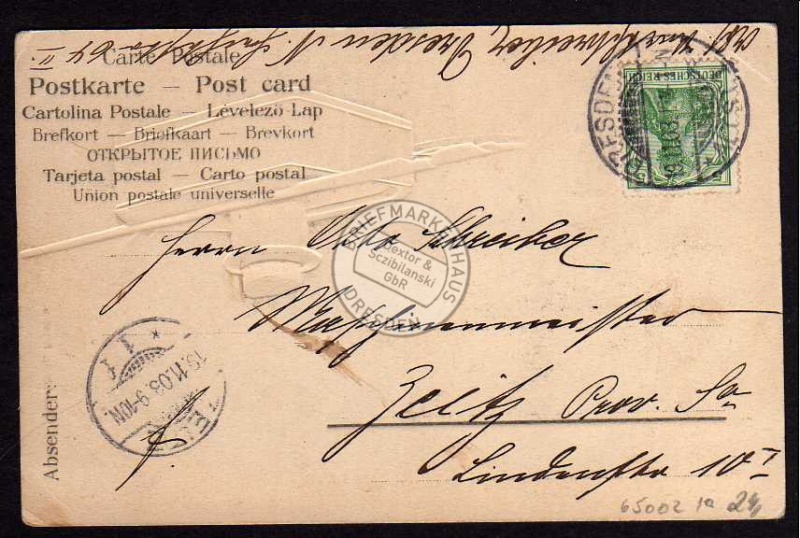 Carte Postale
Postkarte — Post card
Cartolina Postale — Levelező-Lap
Brefkort — Briefkaart — Brevkort
ОТКРЫТОЕ ПИСЬМО
Tarjeta postal — Carto postal
Union postale universelle
Dresden N.
DEUTSCHES REICH
DRESDEN
BRIEFMARKENHAUS
dextor &
Sczibilanski
GbR
DRESDEN
Herrn Otto Schreiber
Maschinenmeister
Zeitz Prov. Sa
Lindenstr 10 I
13.11.03. 9-10N.
Absender:
65002 1a